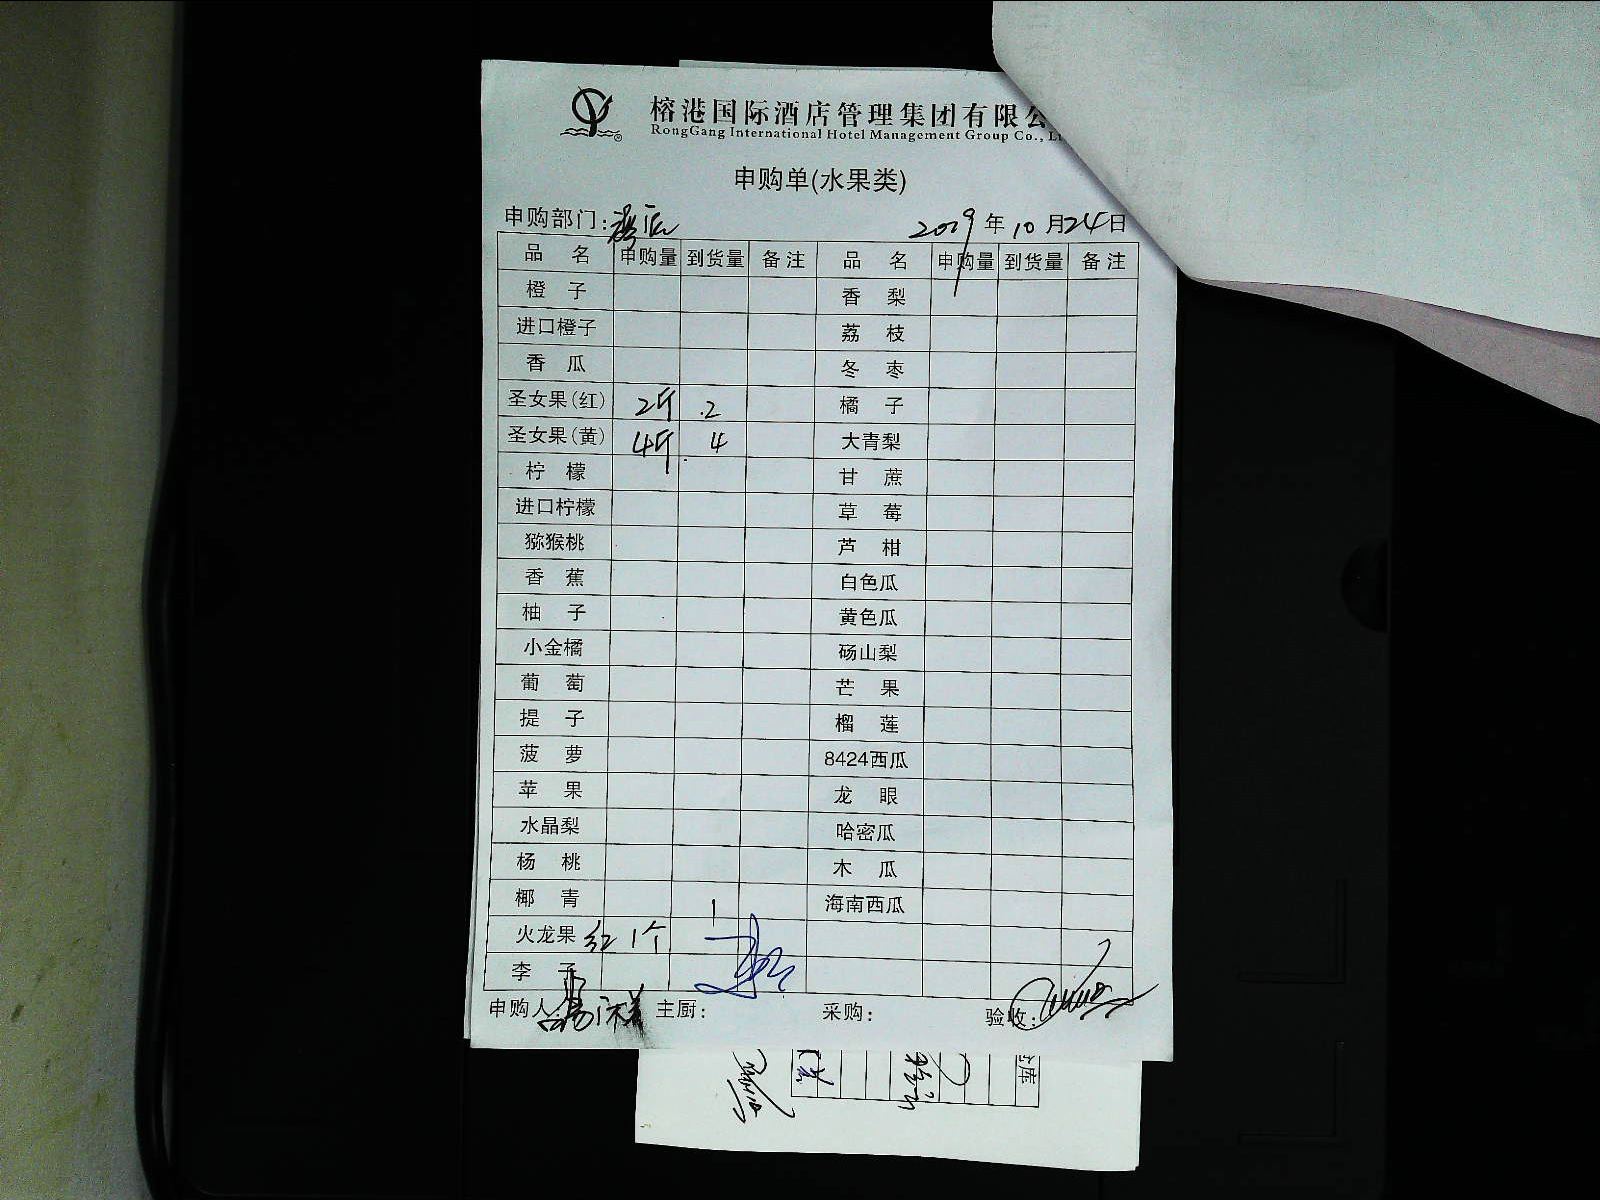 榕港国际酒店管理集团有限公
RongGang International Hotel Management Group Co., Lt
申购单(水果类)
申购部门: 2019年10月24日
品名 申购量 到货量 备注 品名 申购量 到货量 备注
橙子 香梨
进口橙子 荔枝
香瓜 冬枣
圣女果(红) 2斤 .2 橘子
圣女果(黄) 4斤 4 大青梨
柠檬 甘蔗
进口柠檬 草莓
猕猴桃 芦柑
香蕉 白色瓜
柚子 黄色瓜
小金橘 砀山梨
葡萄 芒果
提子 榴莲
菠萝 8424西瓜
苹果 龙眼
水晶梨 哈密瓜
杨桃 木瓜
椰青 海南西瓜
火龙果 红 1个 1
李子
申购人: 主厨: 采购: 验收:
库